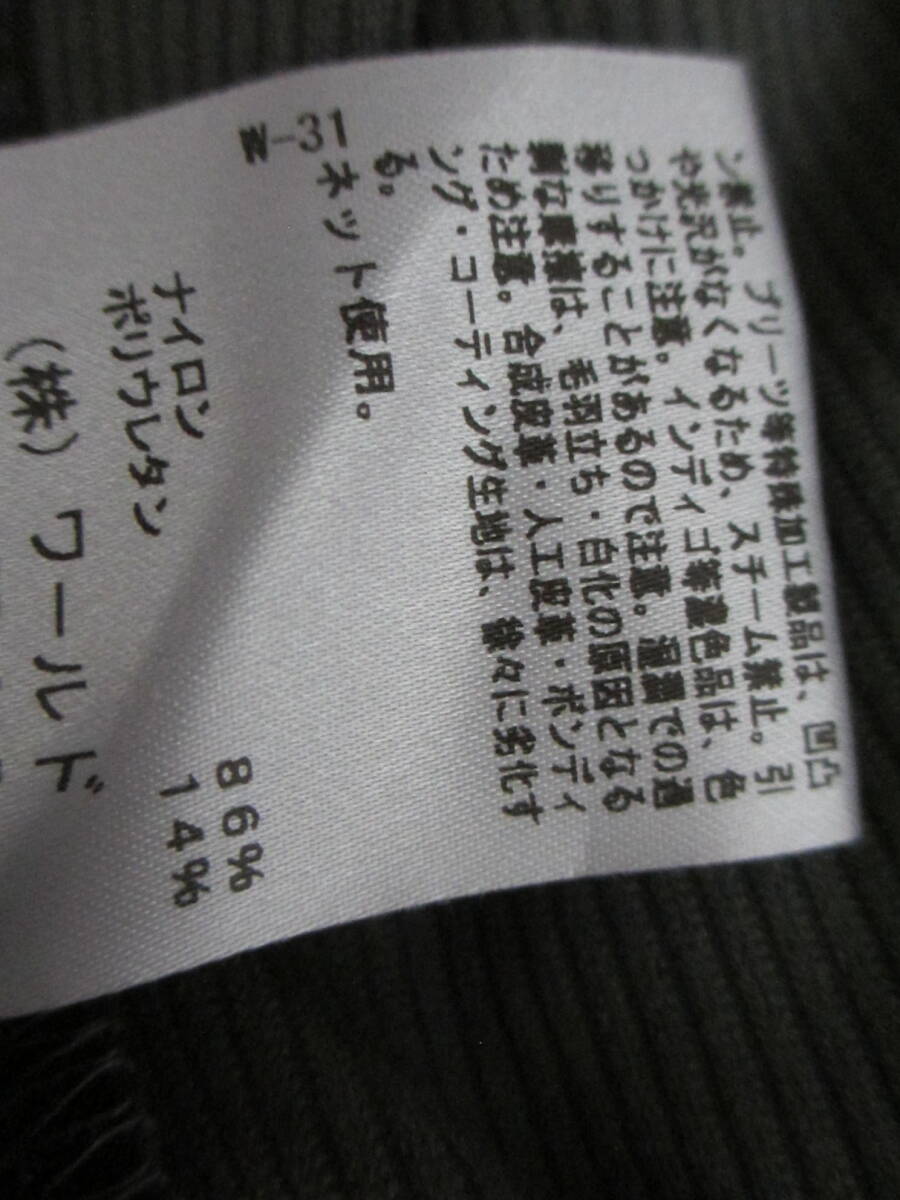 ン禁止。プリーツ等特殊加工製品は、凹凸
や光沢がなくなるため、スチーム禁止。引
っかけに注意。インディゴ等濃色品は、色
移りすることがあるので注意。湿潤での過
剰な摩擦は、毛羽立ち・白化の原因となる
ため注意。合成皮革・人工皮革・ボンディ
ング・コーティング生地は、徐々に劣化す
る。
ネット使用。
W-31
ナイロン 86%
ポリウレタン 14%
(株)ワールド